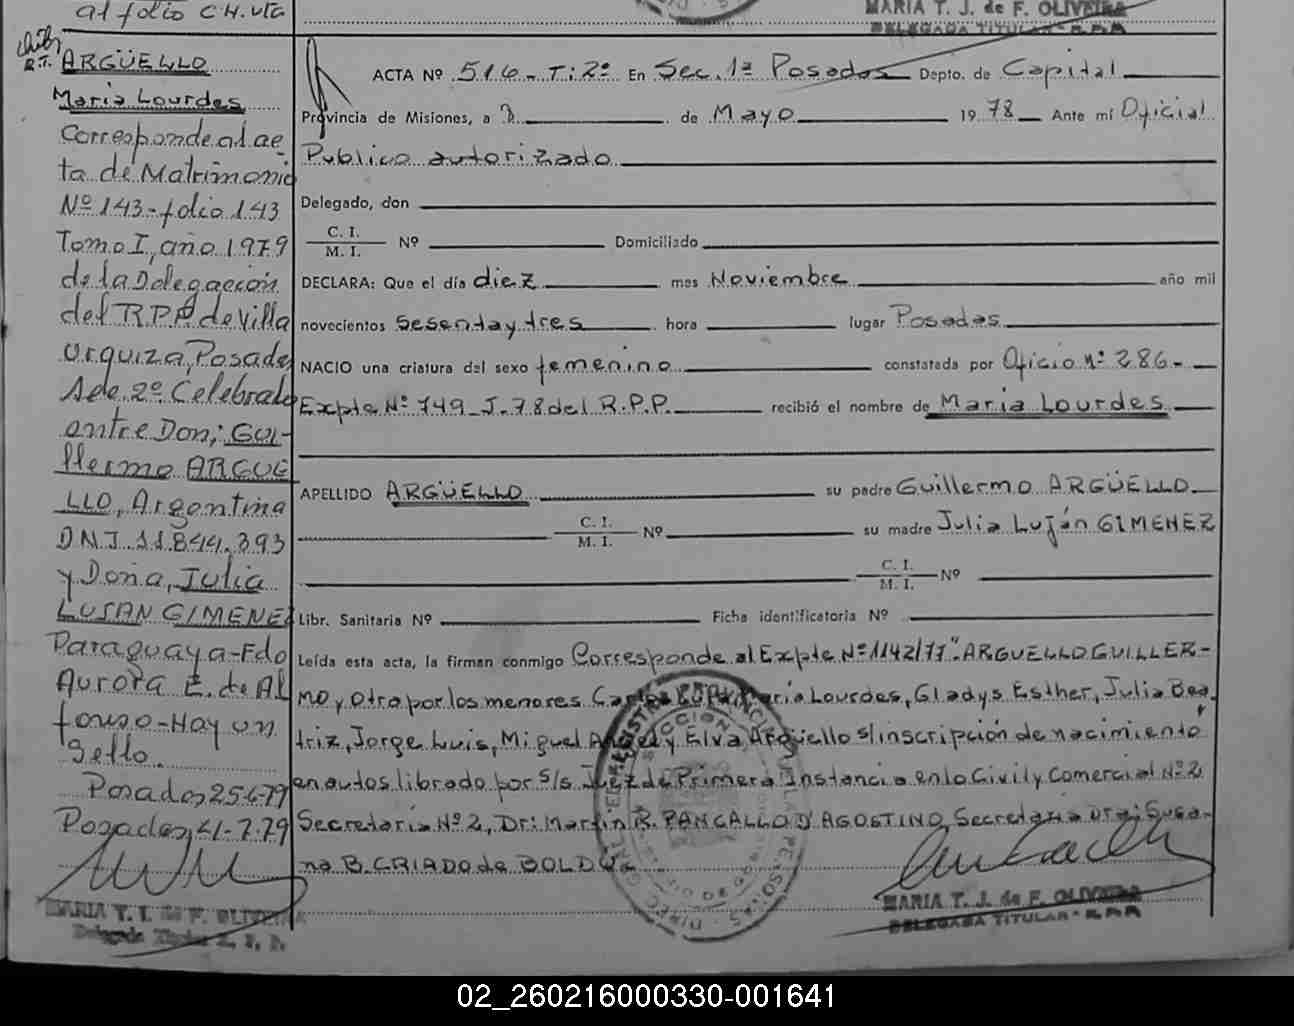 al folio C.H. vta
MARIA T. J. de F. OLIVEIRA
DELEGADA TITULAR - R.P.P.
R.T. ARGÜELLO
Maria Lourdes
Corresponde al ac-
ta de Matrimonio
Nº 143-folio 143
Tomo I, año 1979
de la Delegación
del R.P.P. de Villa
Urquiza, Posadas
Sec. 2º. Celebrado
entre Don; GUI-
llermo ARGUE
LLO, Argentina
DNI. 11.844.393
y Doña, Julia
LUJAN GIMENEZ
Paraguaya-Fdo
Aurora E. de Al
fonso-Hay un
Sello.
Posadas 25-6-79
Posadas, 41-7-79
MARIA T. J. de F. OLIVEIRA
Delegada Titular R. P. P.
ACTA Nº 516 - T: 2º En Sec. 1ª Posadas Depto. de Capital
Provincia de Misiones, a 3 de Mayo 19 78 Ante mí Oficial
Publico autorizado
Delegado, don
C. I.
M. I. Nº Domiciliado
DECLARA: Que el día diez mes Noviembre año mil
novecientos Sesenta y tres hora lugar Posadas
NACIO una criatura del sexo femenino constatada por Oficio nº 286-
Expte Nº 749-J-78 del R.P.P. recibió el nombre de Maria Lourdes
APELLIDO ARGÜELLO su padre Guillermo ARGÜELLO
C. I.
M. I. Nº su madre Julia Luján GIMENEZ
C. I.
M. I. Nº
Libr. Sanitaria Nº Ficha identificatoria Nº
Leída esta acta, la firman conmigo Corresponde al Expte Nº 1142/77 "ARGUELLO GUILLER-
MO y otra por los menores Carlos Maria Lourdes, Gladys Esther, Julia Bea
triz, Jorge Luis, Miguel Angel y Elva Arguello s/inscripción de nacimiento"
en autos librado por S/S. Juez de Primera Instancia en lo Civil y Comercial Nº 2
Secretaria Nº 2, Dr: Martin R. PANCALLO D'AGOSTINO, Secretaria Dra: Susa-
na B. CRIADO de BOLDÚ.
MARIA T. J. de F. OLIVEIRA
DELEGADA TITULAR - R.P.P.
02_260216000330-001641